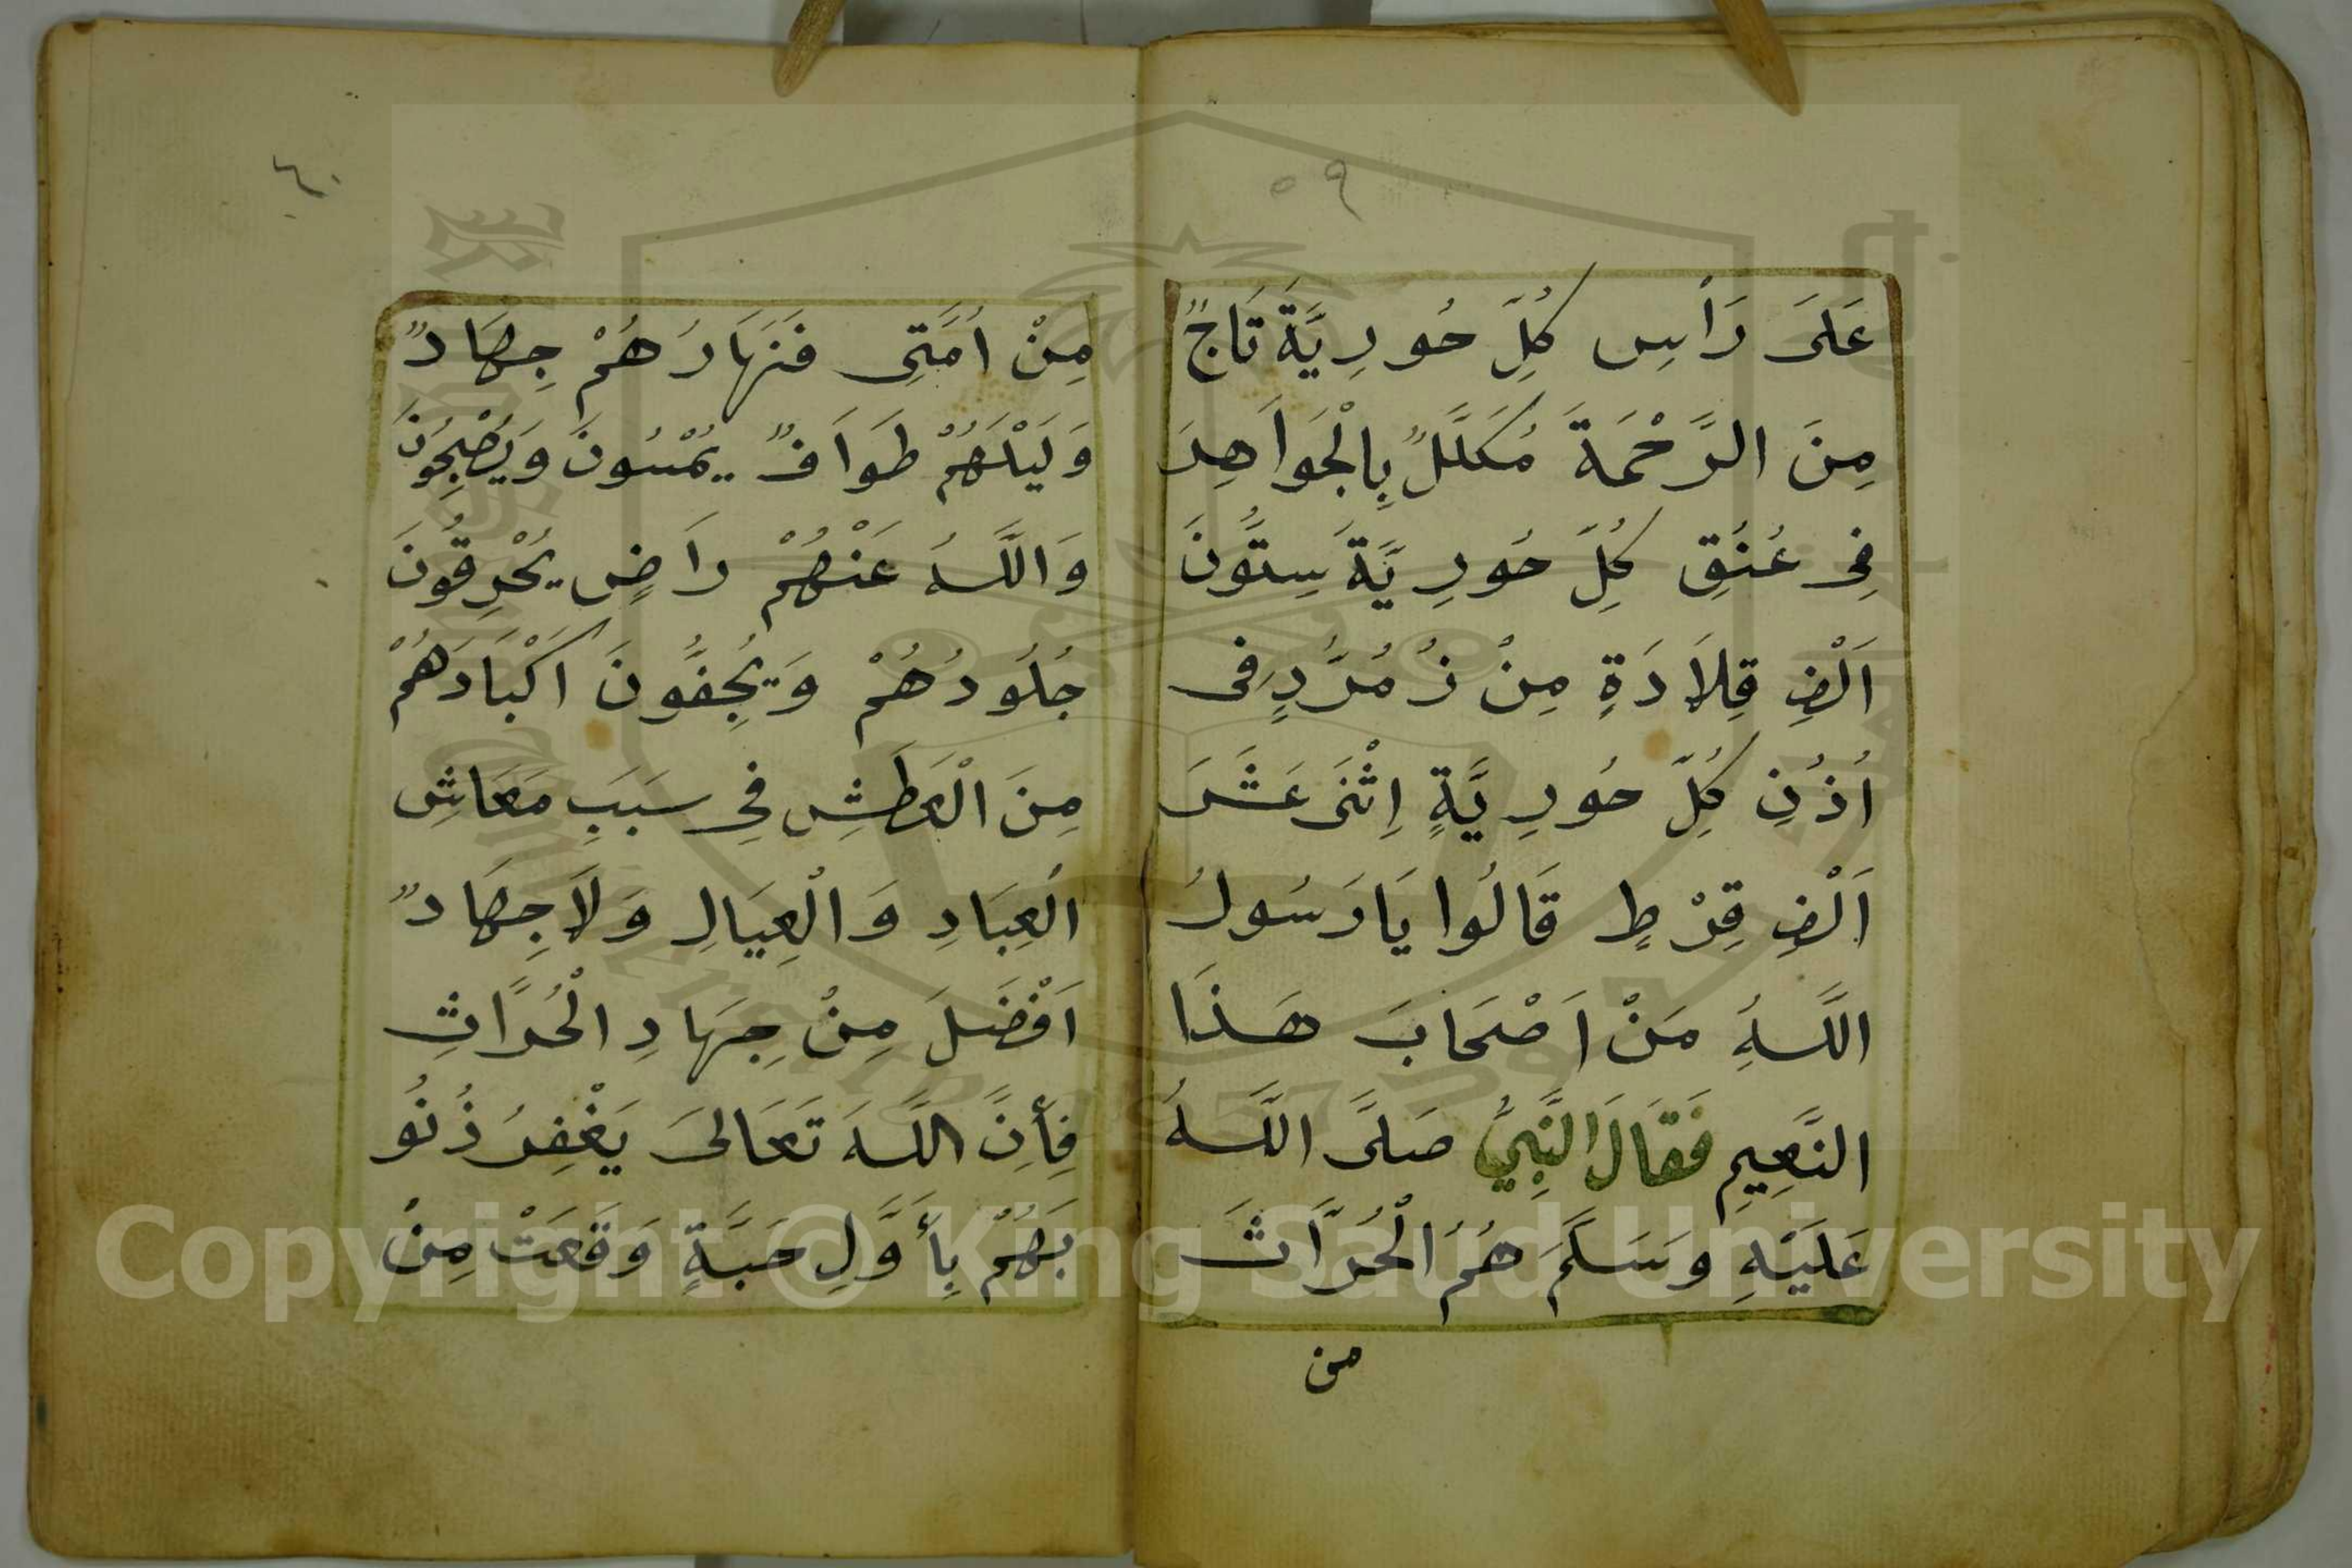 ٥٩
عَلَى رَأْسِ كُلِّ حُورِيَّةَ تَاجٌ
مِنَ الرَّحْمَةَ مُكَلَّلٌ بِالْجَوَاهِرَ
فِى عُنُقِ كُلِّ حُورِيَّةَ سِتُّونَ
اَلْفِ قِلَادَةٍ مِنْ زُمُرُّدٍ فِى
اُذُنِ كُلِّ حُورِيَّةٍ اِثْنَى عَشَرَ
اَلْفِ قِرْطٍ قَالُوا يَارَسُولُ
اللَّهِ مَنْ اَصْحَابَ هَذَا
النَّعِيمِ فَقَالَ النَّبِىُّ صَلَّى اللَّهُ
عَلَيْهِ وَسَلَّمَ هُمُ الْحُرَّاثَ
من
٦٠
مِنْ اُمَّتِى فَنَهَارُهُمْ جِهَادٌ
وَلَيْلَهُمْ طَوَافٌ يُمْسُونَ وَيُصْبِحُونَ
وَاللَّهُ عَنْهُمْ رَاضٍ يُحْرِقُونَ
جُلُودُهُمْ وَيُجِفُّونَ اَكْبَادَهُمْ
مِنَ الْعَطَشِ فِى سَبَبِ مَعَاشِ
الْعِبَادِ وَالْعِيَالِ وَلَا جِهَادٌ
اَفْضَلَ مِنْ جِهَادِ الْحُرَّاثِ
فِأِنَّ اللَّهَ تَعَالَى يَغْفِرُ ذُنُو
بَهُمْ بِأَوَّلِ حَبَّةٍ وَقَعَتْ مِنْ
Copyright © King Saud University